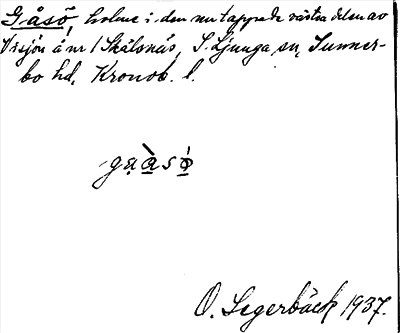 Gåsö, holme i den nu tappade västra delen av
Vrejön å nr 1 Skälsnäs, S. Ljunga sn, Sunner-
bo hd, Kronob. l.
gạàsọ̀
O. Segerbäck 1937.